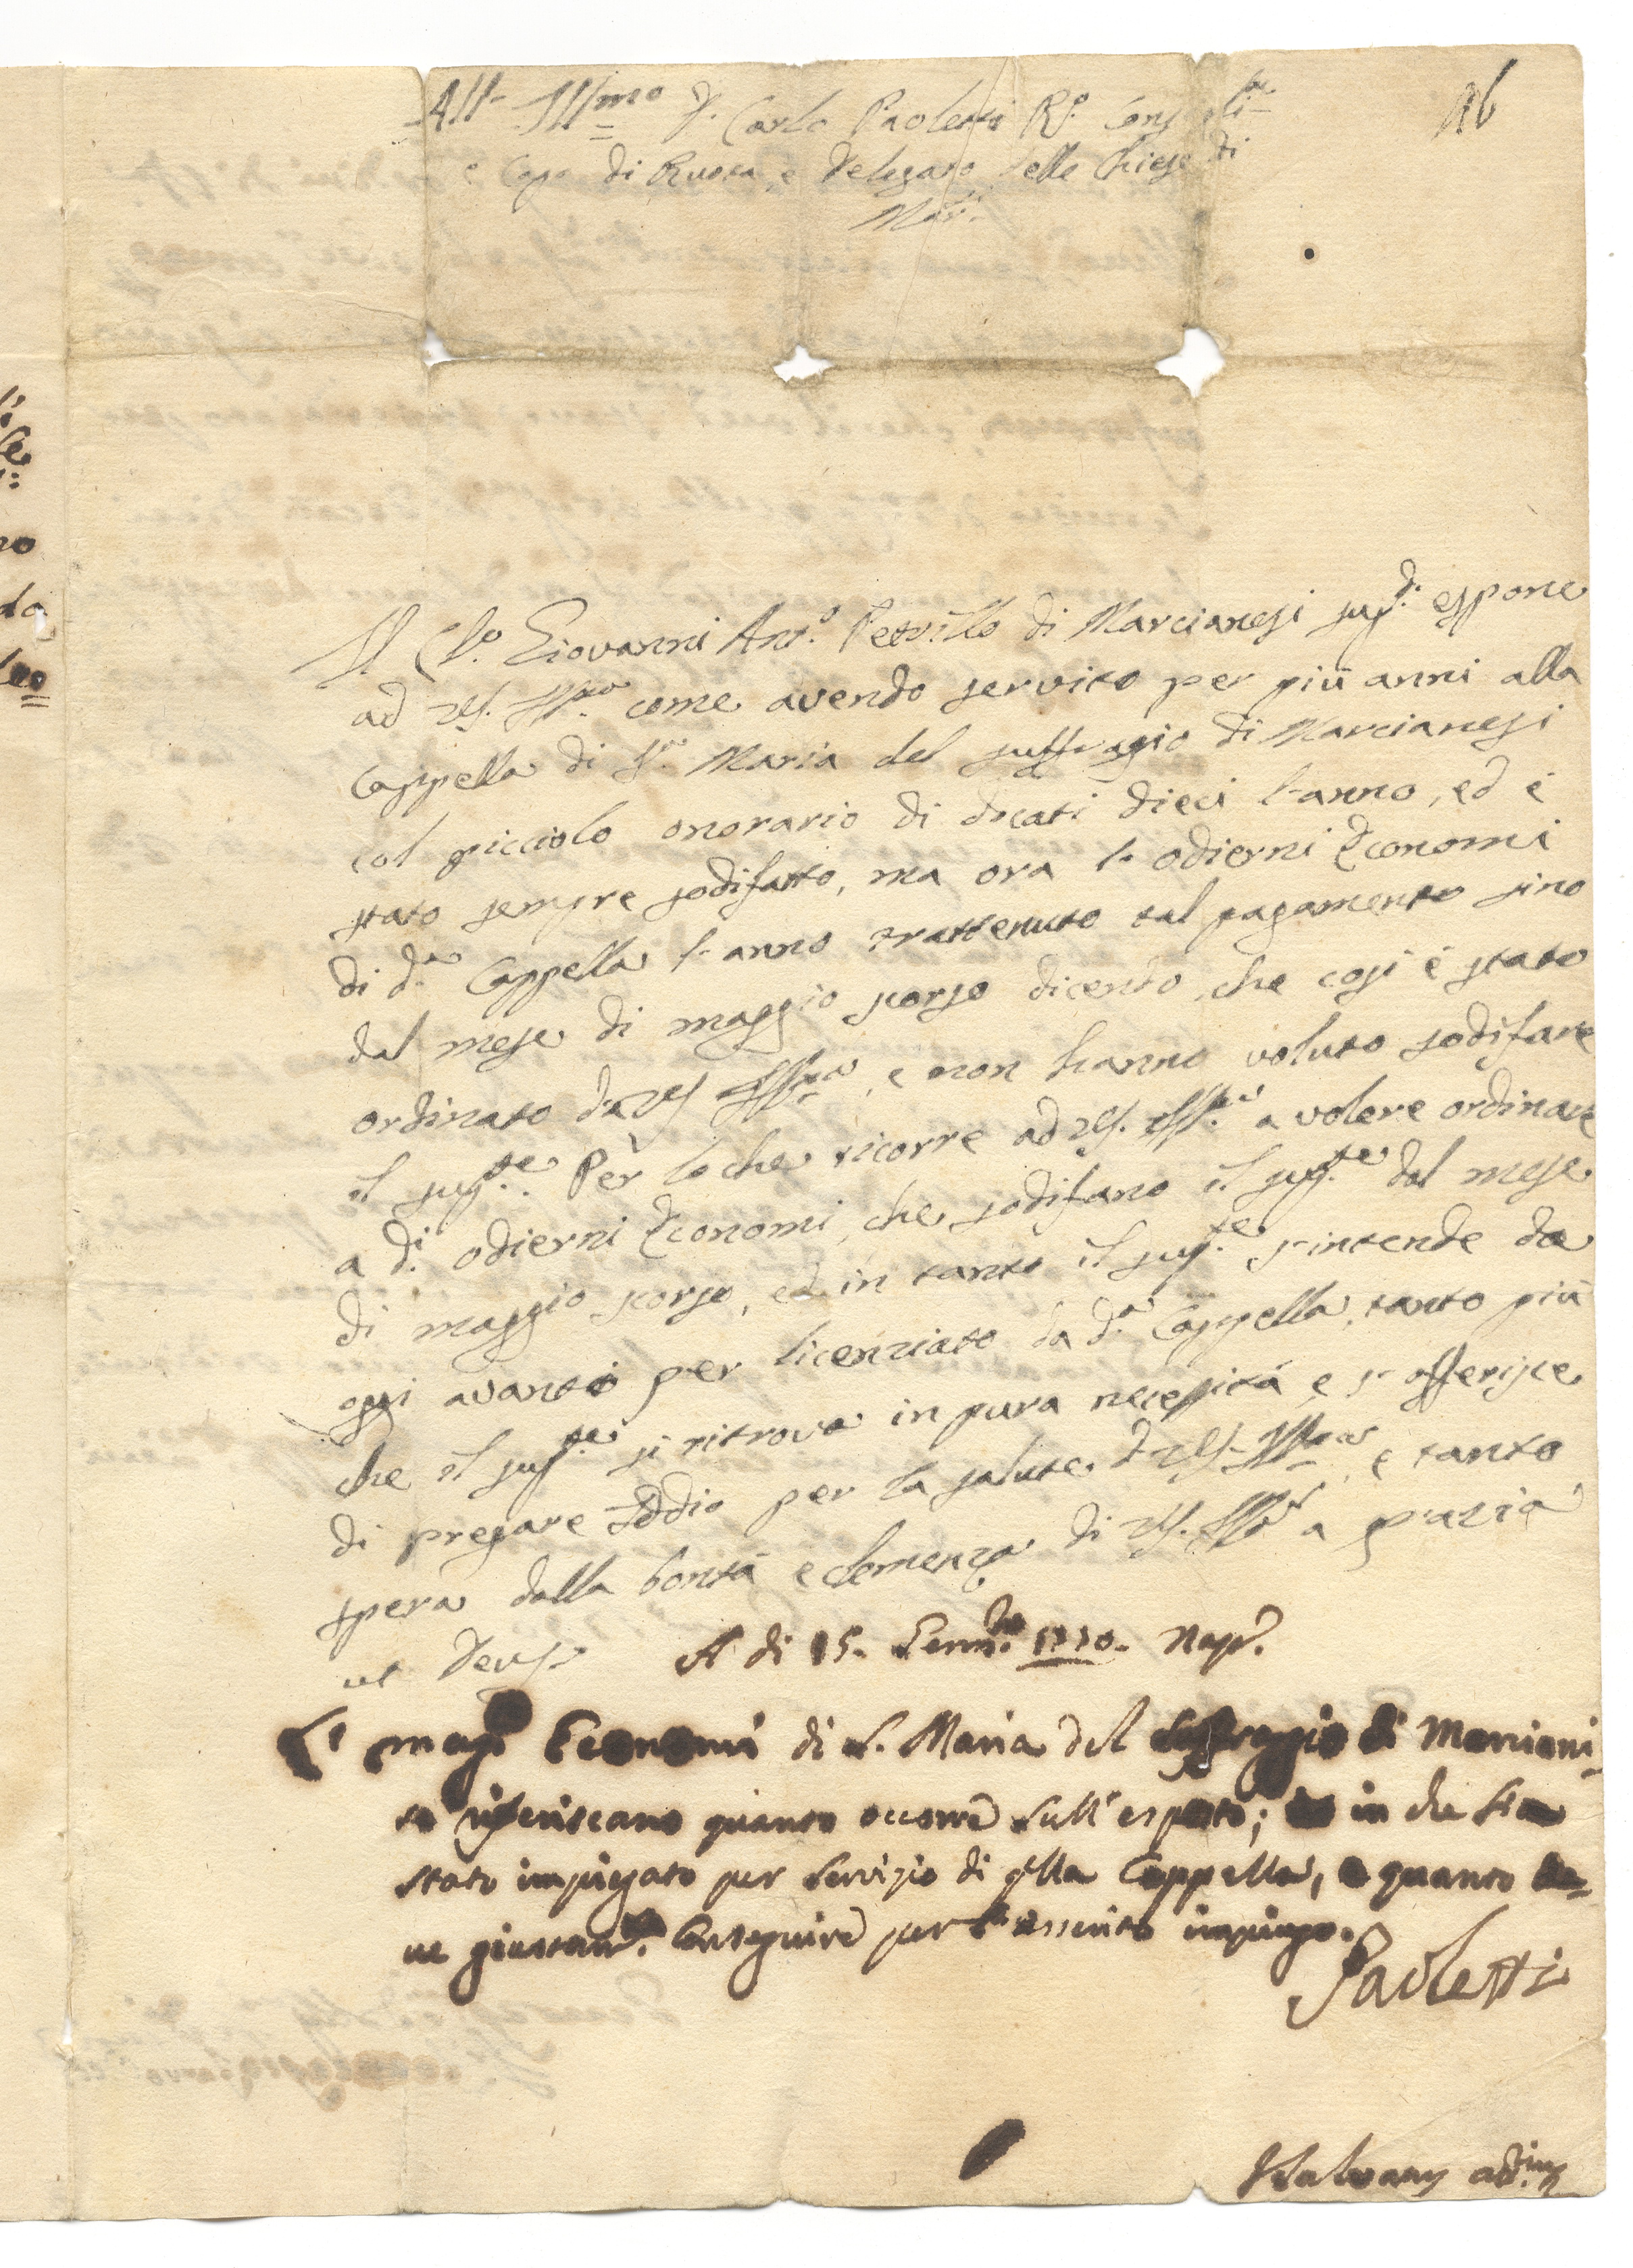 16
All'Ill.mo D. Carlo Paoletti R.o Consigli.re
e Capo di Ruota, e Delegato delle Chiese di
Mar.si
Il Ch.o Giovanni Ant.o Petrillo di Marcianesi sup.te espone
ad VS. Ill.ma come avendo servito per più anni alla
Cappella di S.a Maria del suffragio di Marcianesi
col picciolo onorario di docati dieci l'anno, ed è
stato sempre sodisfatto, ma ora l'odierni Economi
di d.a Cappella l'anno trattenuto tal pagamento sino
dal mese di maggio scorso dicendo, che così è stato
ordinato da VS Ill.ma, e non hanno voluto sodisfare
il sup.te. Per lo che ricorre ad VS. Ill.ma a volere ordinare
a d.i odierni Economi, che sodisfano il sup.te dal mese
di maggio scorso, ed in tanto il sup.te s'intende da
oggi avanti per licenziato da d.a Cappella, tanto più
che il sup.te si ritrova in pura necessità, e s'offerisce
di pregare Iddio per la salute d VS. Ill.ma, e tanto
spera dalla bontà e clemenza di VS. Ill.ma a grazia
ut Deus
A di 15. Genn.o 1770. Nap.
L' mag.ci Economi di S. Maria del Suffragio di Marciani-
se riferiscano quanto occorre sull'esposto; in che sia
stato impiegato per servizio di q.lla Cappella, e quanto de-
ve giustam.te conseguire per l'asserito impiego.
Paoletti